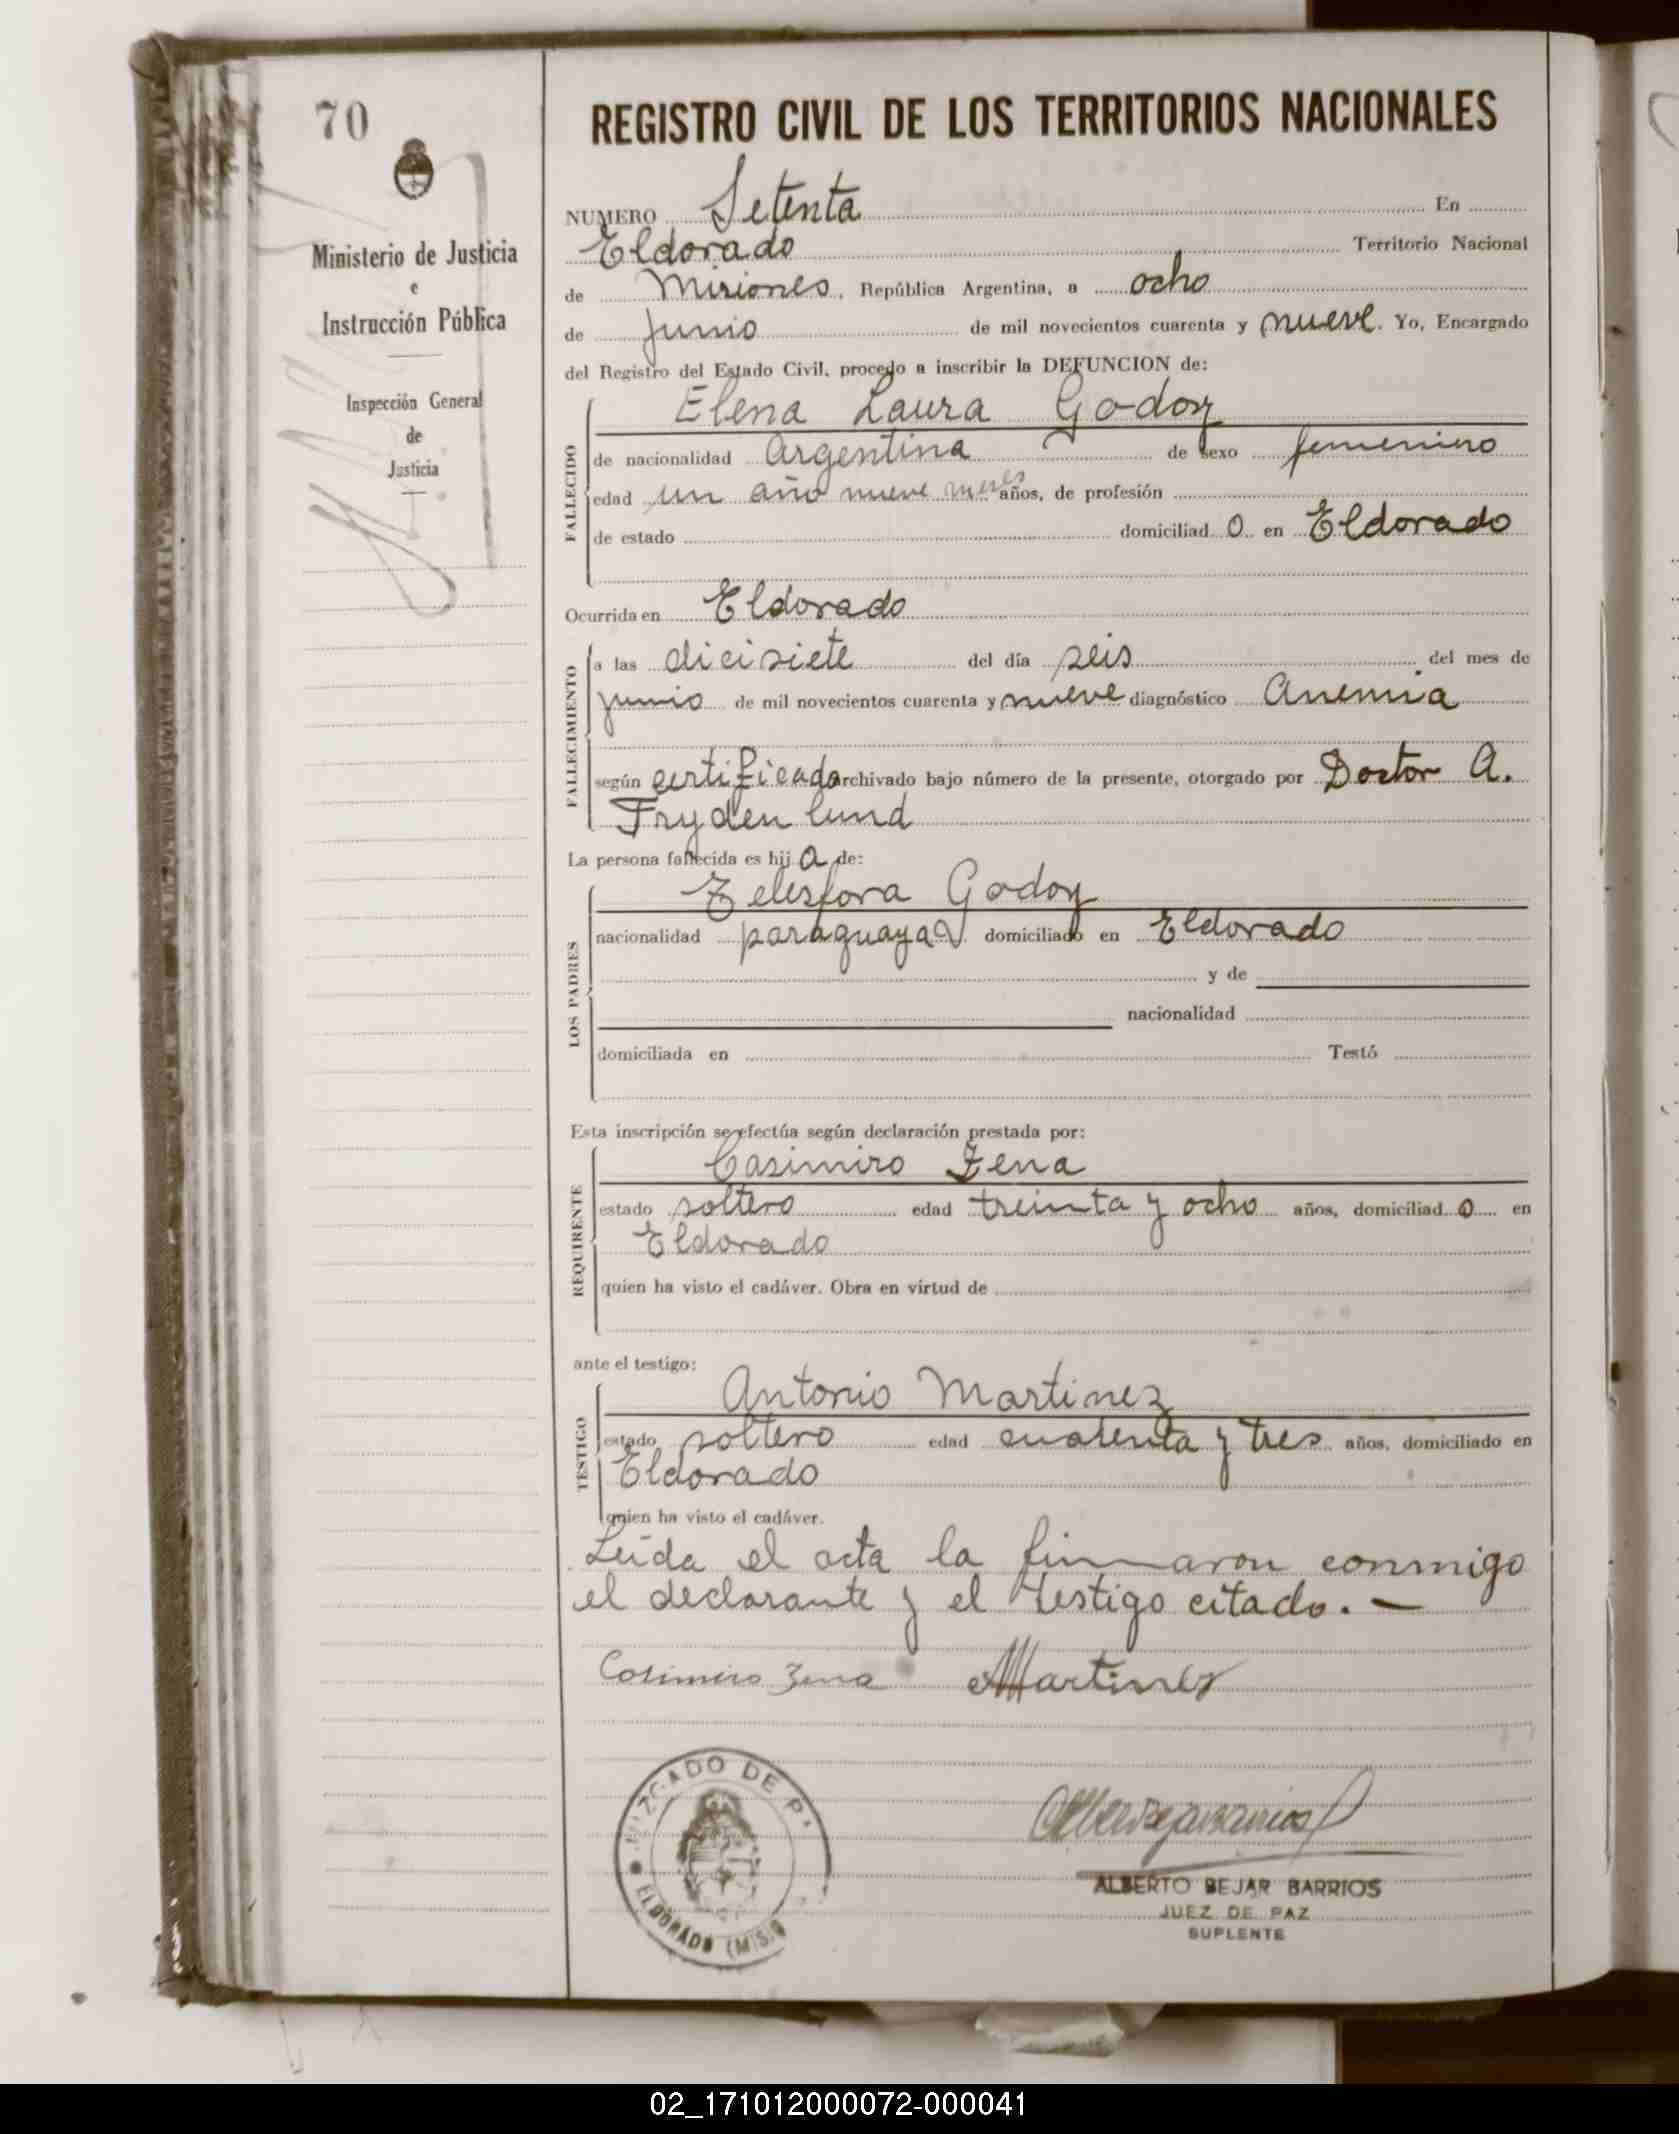 70
REGISTRO CIVIL DE LOS TERRITORIOS NACIONALES
Ministerio de Justicia
e
Instrucción Pública
Inspección General
de
Justicia
NUMERO Setenta En
Eldorado Territorio Nacional
de Misiones, República Argentina, a ocho
de junio de mil novecientos cuarenta y nueve. Yo, Encargado
del Registro del Estado Civil, procedo a inscribir la DEFUNCION de:
FALLECIDO
Elena Laura Godoy
de nacionalidad Argentina de sexo femenino
edad un año nueve meses años, de profesión
de estado domiciliad o en Eldorado
Ocurrida en Eldorado
FALLECIMIENTO
a las dicisiete del día seis del mes de
junio de mil novecientos cuarenta y nueve diagnóstico Anemia
según certificado archivado bajo número de la presente, otorgado por Doctor A.
Frydenlund
La persona fallecida es hij a de:
LOS PADRES
Telesfora Godoy
nacionalidad paraguaya domiciliado en Eldorado
y de
nacionalidad
domiciliada en Testó
Esta inscripción se efectúa según declaración prestada por:
REQUIRENTE
Casimiro Zena
estado soltero edad treinta y ocho años, domiciliad o en
Eldorado
quien ha visto el cadáver. Obra en virtud de
ante el testigo:
TESTIGO
Antonio Martinez
estado soltero edad cuarenta y tres años, domiciliado en
Eldorado
quien ha visto el cadáver.
Leída el acta la firmaron conmigo
el declarante y el testigo citado. —
Casimiro Zena Martinez
JUZGADO DE P.
ELDORADO (MIS.)
ALBERTO BEJAR BARRIOS
JUEZ DE PAZ
SUPLENTE
02_171012000072-000041